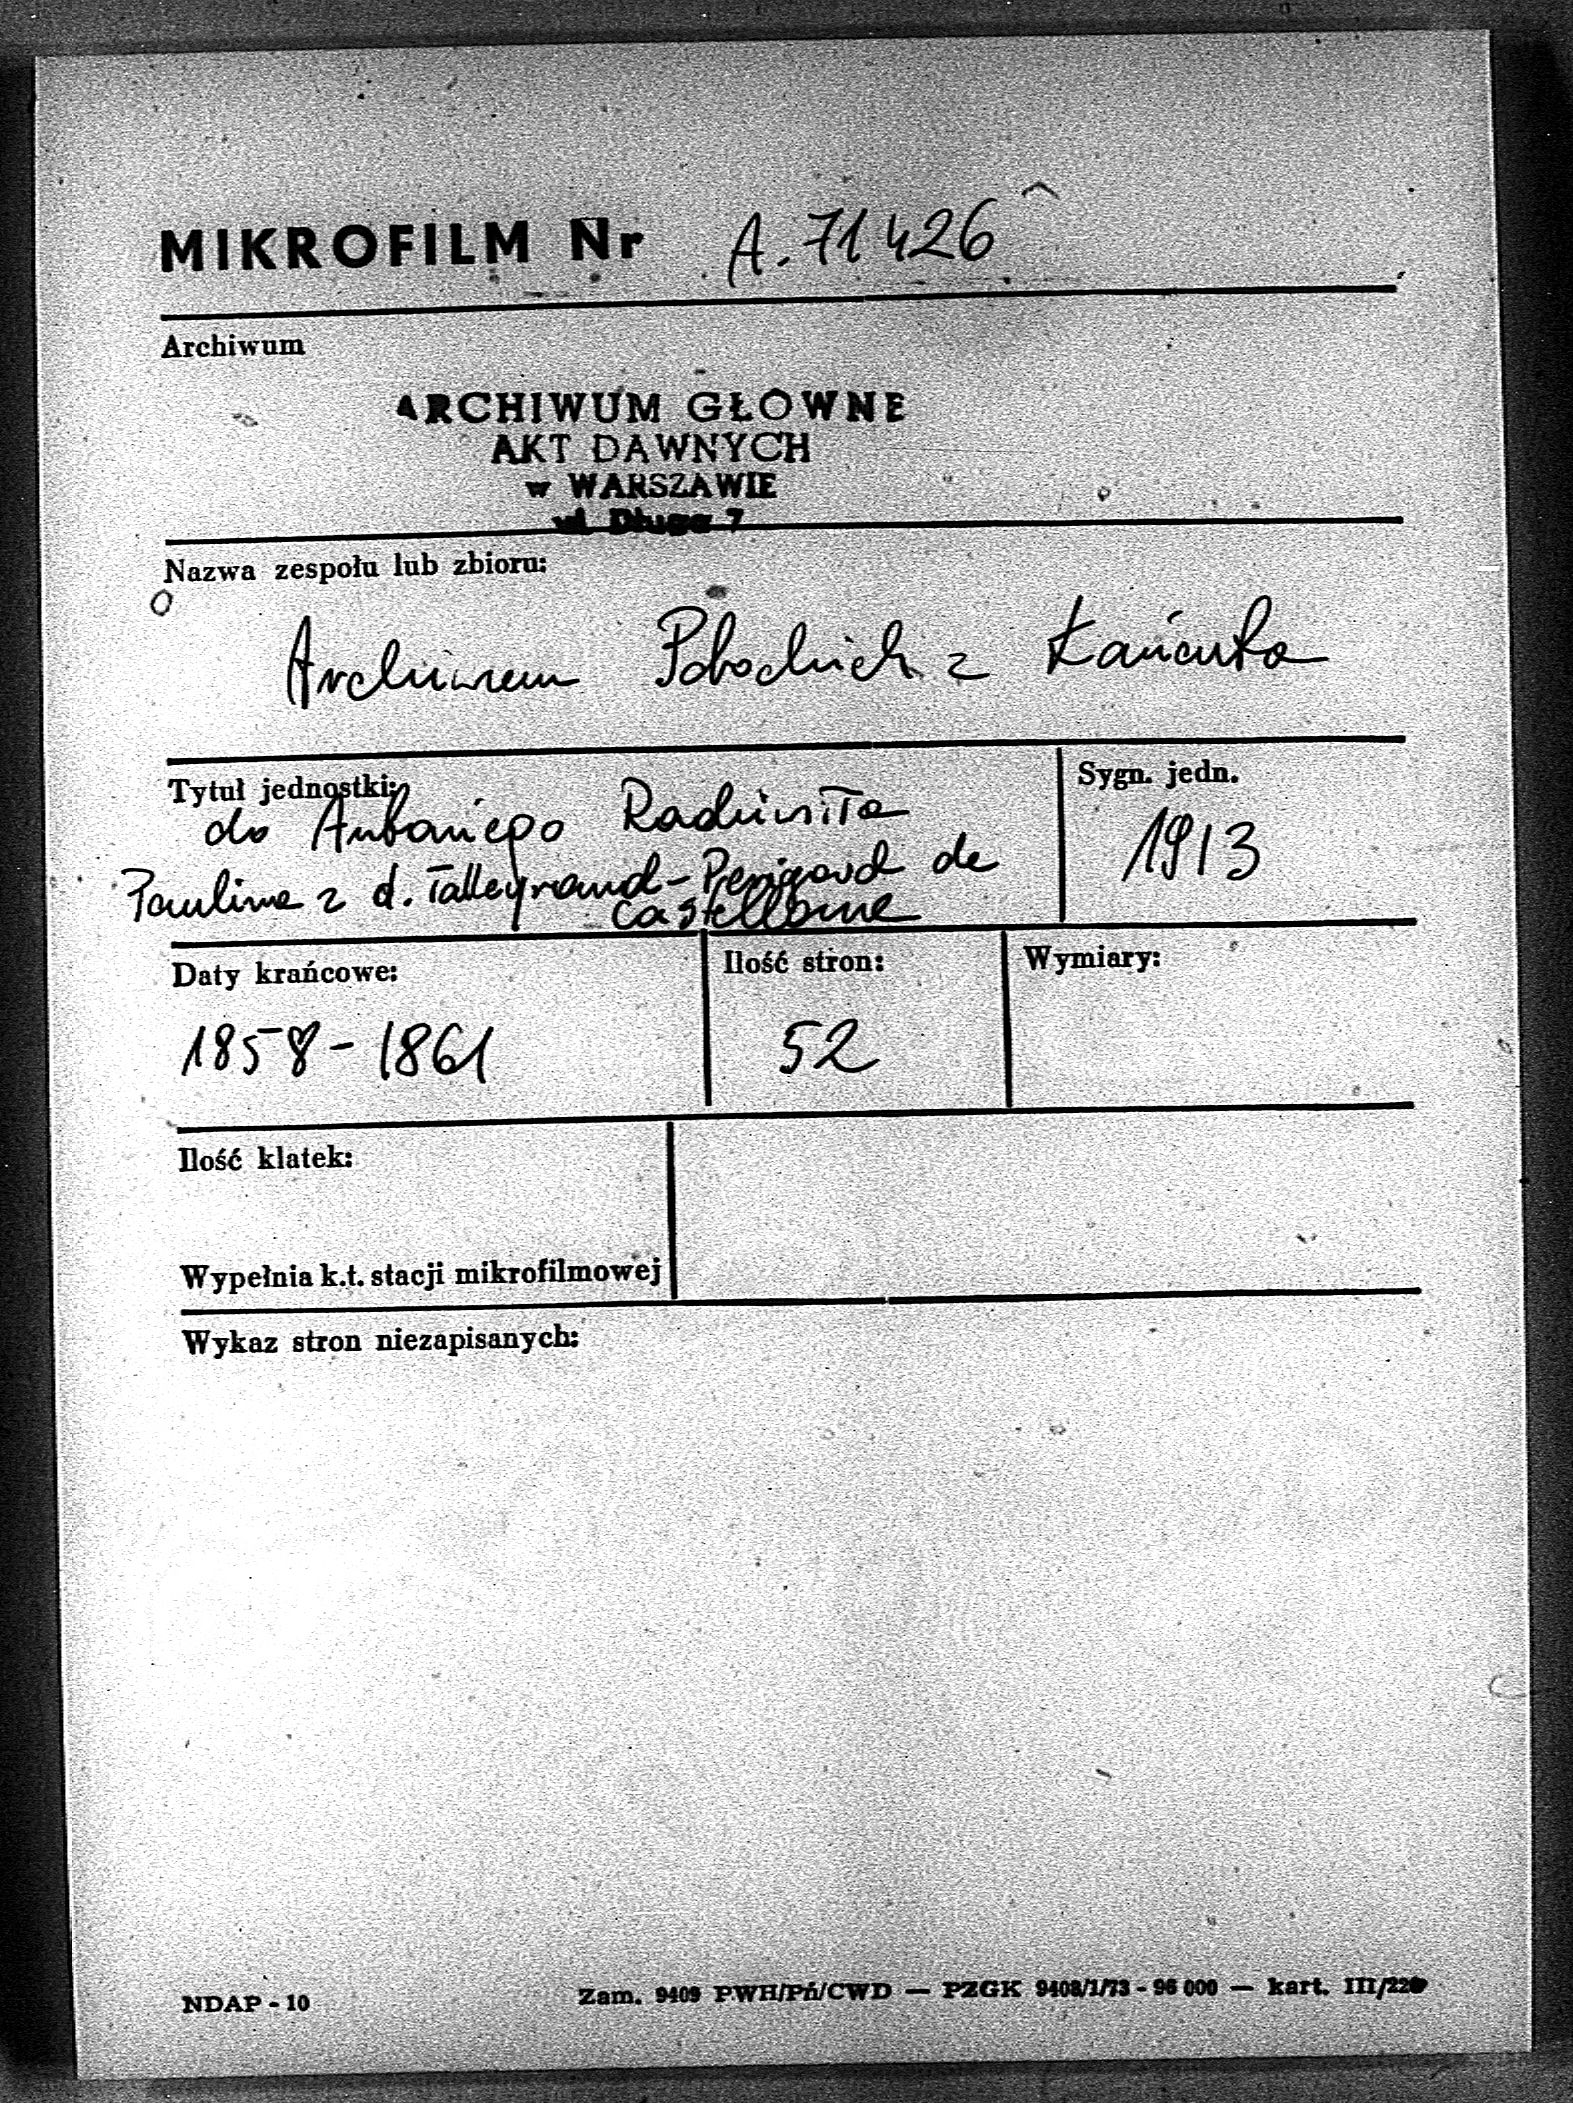 MIKROFILM Nr A. 71426
Archiwum
ARCHIWUM GŁÓWNE
AKT DAWNYCH
w WARSZAWIE
ul. Długa 7
Nazwa zespołu lub zbioru:
Archiwum Potockich z Łańcuta
Tytuł jednostki:
Sygn. jedn.
do Antoniego Radziwiłła
Paulina z d. Talleyrand-Perigord de
Castellane
1913
Daty krańcowe:
Ilość stron:
Wymiary:
1858-1861
52
Ilość klatek:
Wypełnia k.t. stacji mikrofilmowej
Wykaz stron niezapisanych:
NDAP - 10
Zam. 9409 PWH/Pń/CWD — PZGK 9408/1/73 - 96 000 — kart. III/220